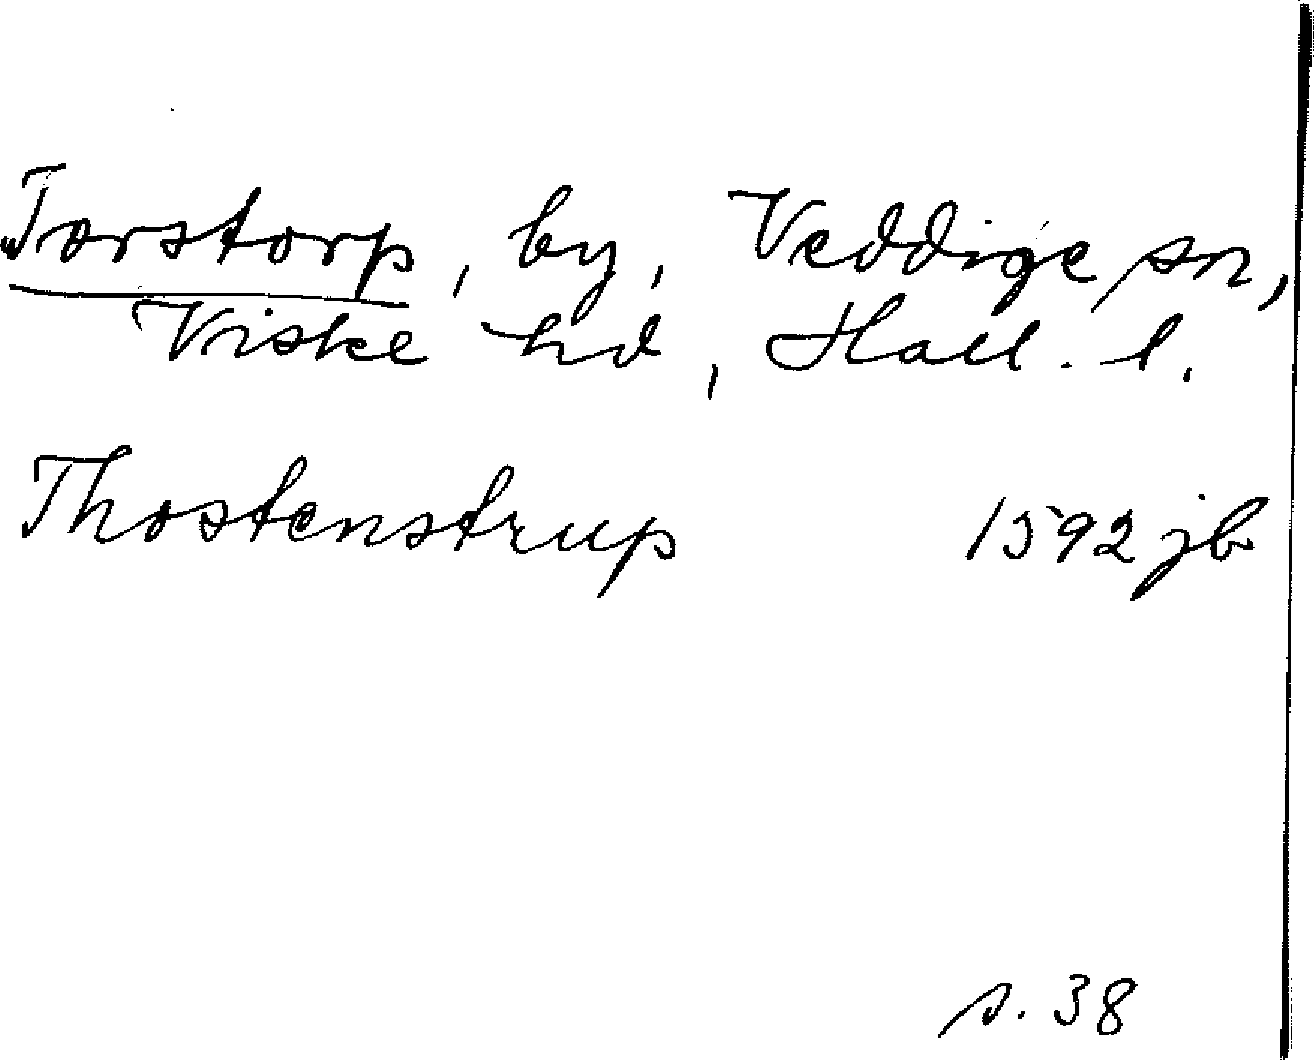 Torstorp, by, Veddige sn,
Viske hd, Hall. l.
Thostenstrup 1592 jb
s. 38